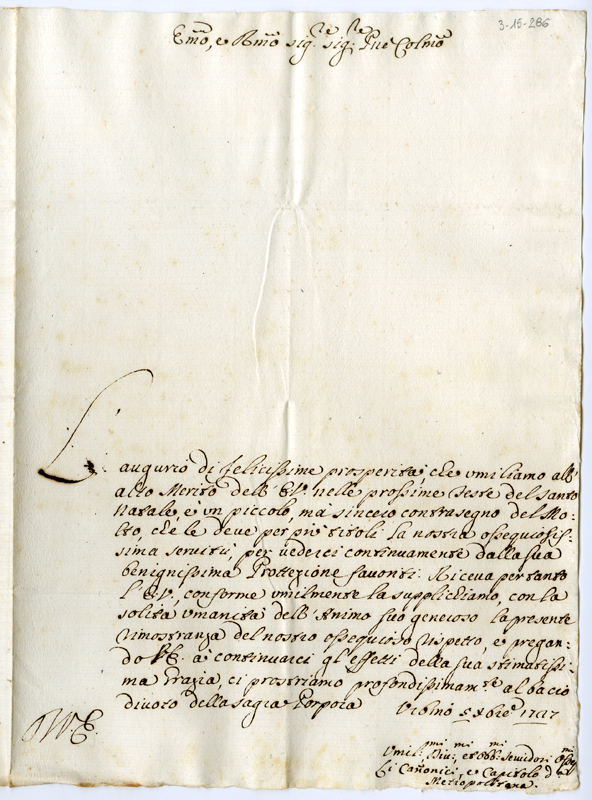 3-15-286
Emo, e Rmo sig.re sig.re Pne Colmo
L'augurio di felicissime prosperità, che umiliamo all'
alto Merito dell' E.V. nelle prossime Feste del Santo
Natale, è un piccolo, ma sincero contrasegno del Mo-
lto, che le deve per più titoli la nostra ossequiosis-
sima servitù, per vederci continuamente dalla sua
benignissima Protezzione favoriti. Riceva per tanto
l'E.V., conforme umilmente la supplichiamo, con la
solita umanità dell' Animo suo generoso la presente
rimostranza del nostro ossequioso rispetto, e pregan-
do VE. à continuarci gl'effetti della sua stimatissi-
ma Grazia, ci prostriamo profondissimam.te al bacio
divoto della sagra Porpora Urbino xbre 1727
V.E.
Umil.mi Div.mi, et Obb.mi Servidori
Li Canonici, e Capitolo d
Metropolitana.